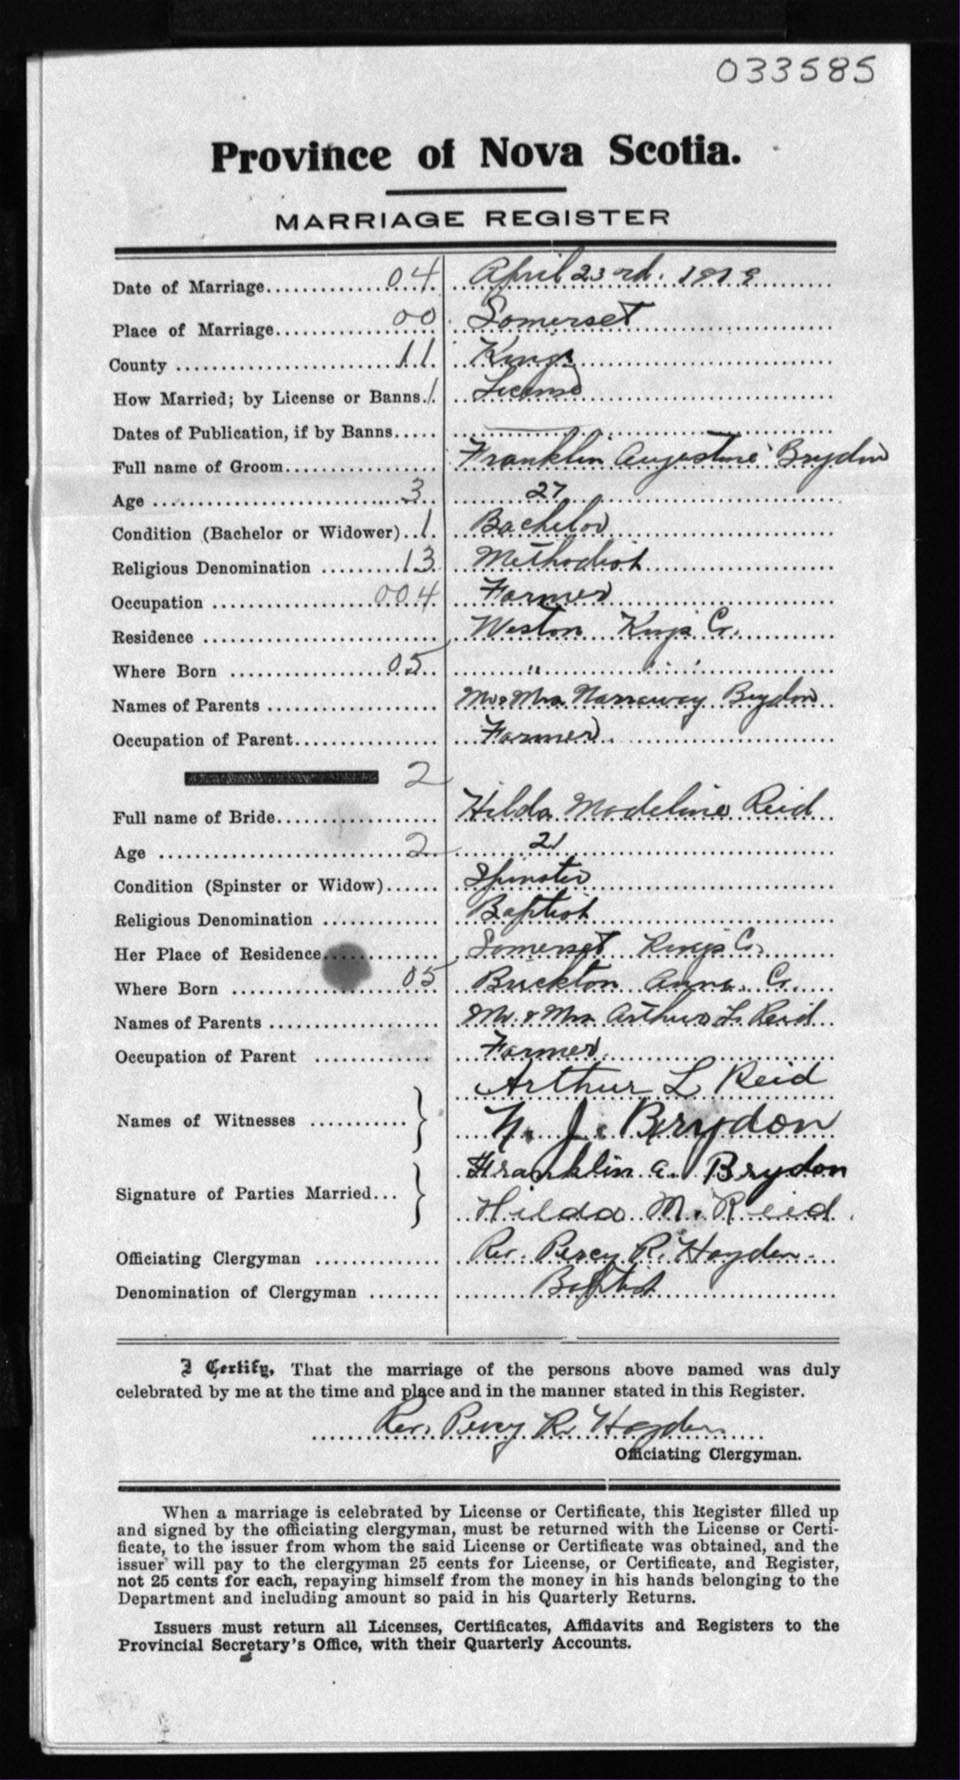 033585
Province of Nova Scotia.
MARRIAGE REGISTER
Date of Marriage................04. April 23rd. 1919
Place of Marriage................00. Somerset
County ........................11. Kings
How Married; by License or Banns./. License
Dates of Publication, if by Banns.....
Full name of Groom................. Franklin Augustine Brydon
Age ............................3.. 27
Condition (Bachelor or Widower)..1. Bachelor
Religious Denomination ........13. Methodist
Occupation ................004. Farmer
Residence ........................ Weston Kings Co.
Where Born ................05.. " " "
Names of Parents .................. Mr & Mrs Narraway Brydon
Occupation of Parent................ Farmer
2
Full name of Bride................. Hilda Madeline Reid
Age ............................2.. 21
Condition (Spinster or Widow)...... Spinster
Religious Denomination ............. Baptist
Her Place of Residence............. Somerset Kings Co.
Where Born ..................05.. Brickton Anna. Co.
Names of Parents .................. Mr. & Mrs Arthur L. Reid
Occupation of Parent ............. Farmer
Arthur L Reid
Names of Witnesses ...........
N. J. Brydon
Franklin A. Brydon
Signature of Parties Married...
Hilda M. Reid.
Officiating Clergyman .............. Rev. Percy R. Hayden
Denomination of Clergyman ........ Baptist
I Certify, That the marriage of the persons above named was duly
celebrated by me at the time and place and in the manner stated in this Register.
Rev. Percy R. Hayden
Officiating Clergyman.
When a marriage is celebrated by License or Certificate, this Register filled up
and signed by the officiating clergyman, must be returned with the License or Certi-
ficate, to the issuer from whom the said License or Certificate was obtained, and the
issuer will pay to the clergyman 25 cents for License, or Certificate, and Register,
not 25 cents for each, repaying himself from the money in his hands belonging to the
Department and including amount so paid in his Quarterly Returns.
Issuers must return all Licenses, Certificates, Affidavits and Registers to the
Provincial Secretary's Office, with their Quarterly Accounts.